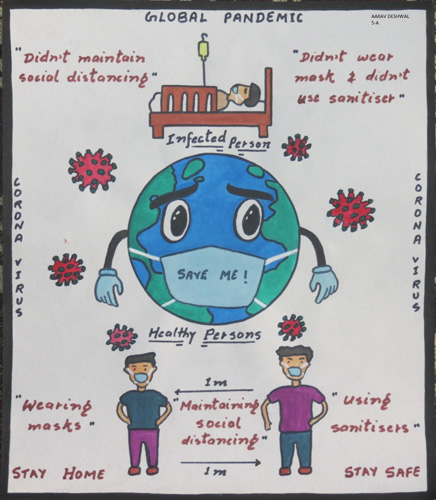 GLOBAL PANDEMIC
AARAV DESHWAL
5-A
"Didn't maintain
social distancing"
"Didn't wear
mask & didn't
use sanitiser"
Infected Person
CORONA VIRUS
CORONA VIRUS
SAVE ME!
Healthy Persons
1m
"Wearing
masks"
"Maintaining
social
distancing"
"Using
sanitisers"
1m
STAY HOME
STAY SAFE